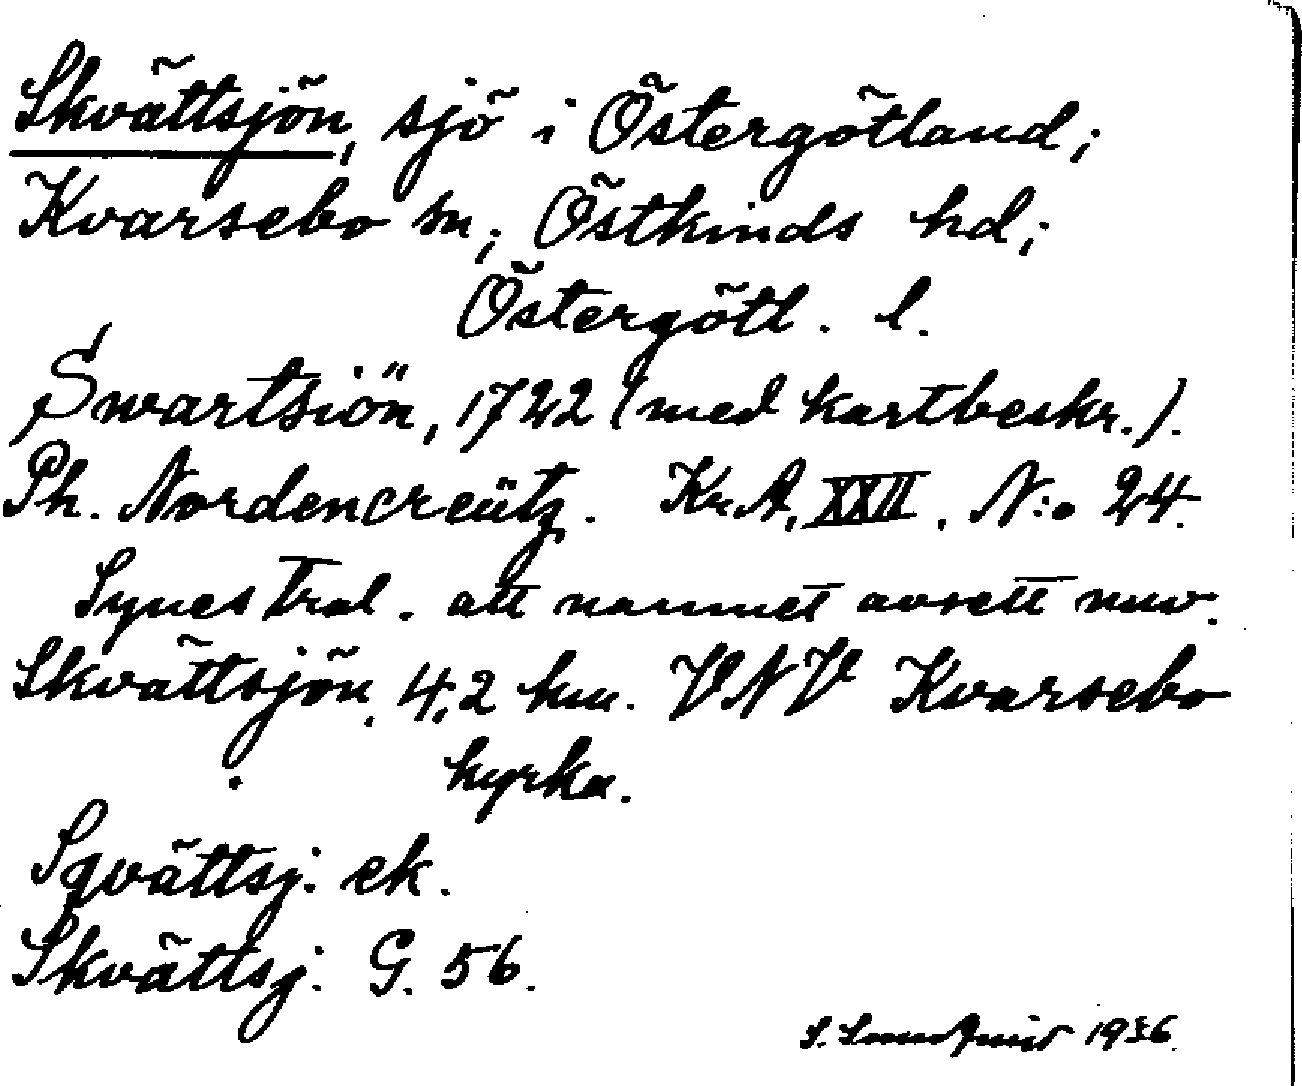 Skvättsjön, sjö i Östergötland;
Kvarsebo sn; Östkinds hd;
Östergötl. l.
Swartsiön, 1722 (med kartbeskr.).
Ph. Nordencreütz. Kr.A. XXII. N:o 24.
Synes Trol. att namnet avsett nuv.
Skvättsjön, 4,2 km. VNV Kvarsebo
kyrka.
Sqvättsj. ek.
Skvättsj. G. 56.
S. 1936